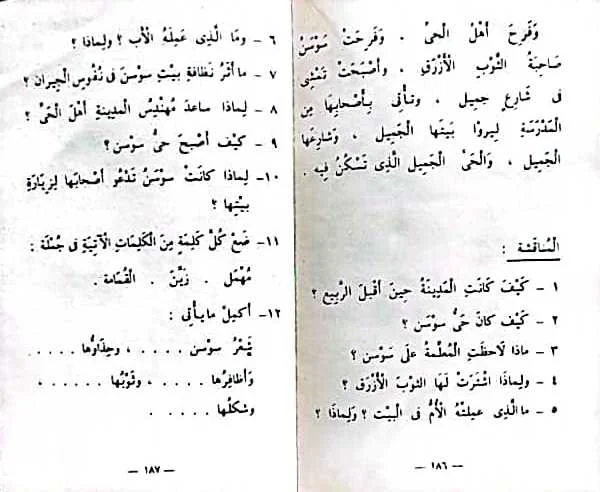 وَفَرِحَ أَهْلُ الْحَىِّ . وَفَرِحَتْ سَوْسَنُ
صَاحِبَةُ الثَّوْبِ الْأَزْرَقِ ، وَأَصْبَحَتْ تَمْشِى
فى شَارِعٍ جميل ، وتأتى بِأَصْحابِهَا مِنَ
الْمَدْرَسَةِ لِيروْا بَيتَهَا الْجَميل ، وشارِعَها
الْجَميل ، وَالْحَىَّ الْجَميل الَّذى تَسْكُنُ فيه .
الْمُناقشة :
١ - كَيْفَ كَانَتِ الْمَدِينَةُ حِينَ أَقْبَلَ الرَّبِيع ؟
٢ - كَيْفَ كانَ حَىُّ سَوْسَن ؟
٣ - ماذا لَاحظَتِ الْمُعلِّمةُ علَى سَوْسَن ؟
٤ - ولِماذا اشْتَرَتْ لَهَا الثوْبَ الْأَزْرَق ؟
٥ - ما الَّذِى عمِلَتْهُ الْأُمُّ فى الْبَيْت ؟ ولِمَاذَا ؟
— ١٨٦ —
٦ - وما الَّذِى عَمِلَهُ الْأَب ؟ ولماذا ؟
٧ - ما أَثَرُ نَظافَةِ بَيْتِ سوْسنَ فى نُفُوسِ الْجِيران ؟
٨ - لِماذا ساعدَ مُهَنْدِسُ الْمدِينةِ أَهْلَ الْحَىِّ ؟
٩ - كَيْف أَصْبحَ حىُّ سوْسن ؟
١٠- لِماذا كانَتْ سَوْسَنُ تَدْعُو أَصْحابَها لِزِيَارَةِ
بيْتِها ؟
١١- ضَعْ كُلَّ كلِمَةٍ مِنَ الْكَلِمَاتِ الْآتِيَةِ فى جُمْلَة :
مُهْمَل . زَيَّنَ . الْقُمَامَة .
١٢- أَكْمِلْ ما يَأْتى :
شَعْرُ سوْسن . . . . ، وحِذَاؤُها . . . . .
وَأَظافِرُها . . . . ، وثَوْبُها . . . . . ،
وشكْلُها . . . . .
— ١٨٧ —